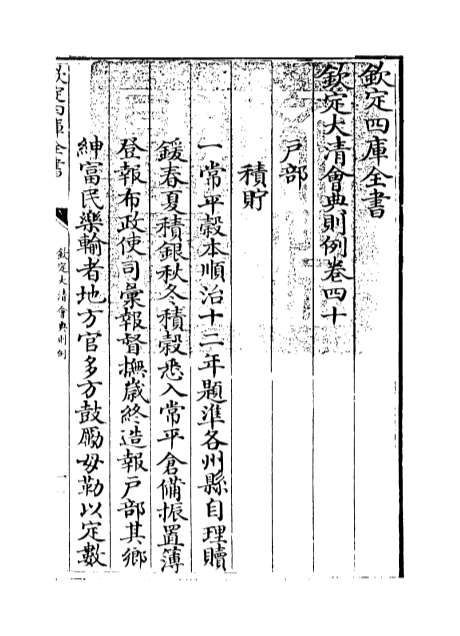 欽定四庫全書
欽定大清會典則例卷四十
户部
積貯
一常平穀本順治十二年題準各州縣自理贖
鍰春夏積銀秋冬積穀悉入常平倉備振置簿
登報布政使司彙報督撫歲終造報户部其鄉
紳富民樂輸者地方官多方鼓勵毋勒以定數
欽定四庫全書
欽定大清會典則例
一